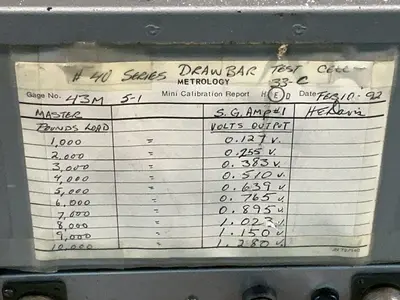 # 40 SERIES DRAWBAR TEST CELL
METROLOGY 33-C
Gage No. 43M 5-1 Mini Calibration Report H E D Date FEB 10 : 92
MASTER S.G. AMP #1 H E Davis
POUNDS LOAD VOLTS OUTPUT
1,000 " 0.127 V.
2,000 " 0.255 V.
3,000 " 0.383 V.
4,000 " 0.510 V.
5,000 " 0.639 V.
6,000 " 0.765 V.
7,000 " 0.895 V.
8,000 " 1.023 V.
9,000 " 1.150 V.
10,000 " 1.280 V.